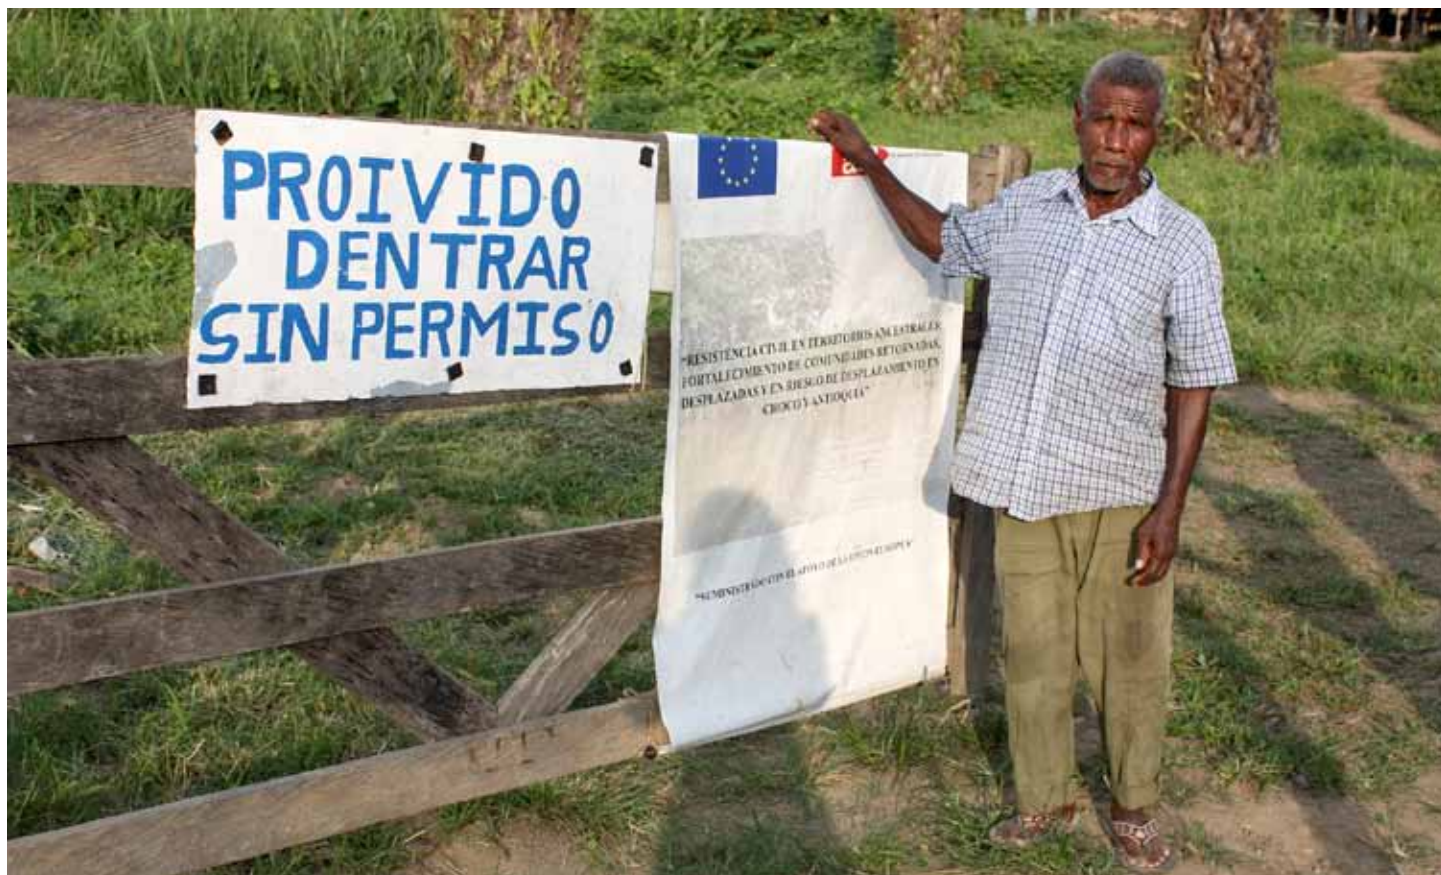 PROIVIDO
DENTRAR
SIN PERMISO
"RESISTENCIA CIVIL EN TERRITORIOS ANCESTRALES:
FORTALECIMIENTO DE COMUNIDADES RETORNADAS,
DESPLAZADAS Y EN RIESGO DE DESPLAZAMIENTO EN
CHOCO Y ANTIOQUIA"
"SUMINISTRADO CON EL APOYO DE LA UNION EUROPEA"